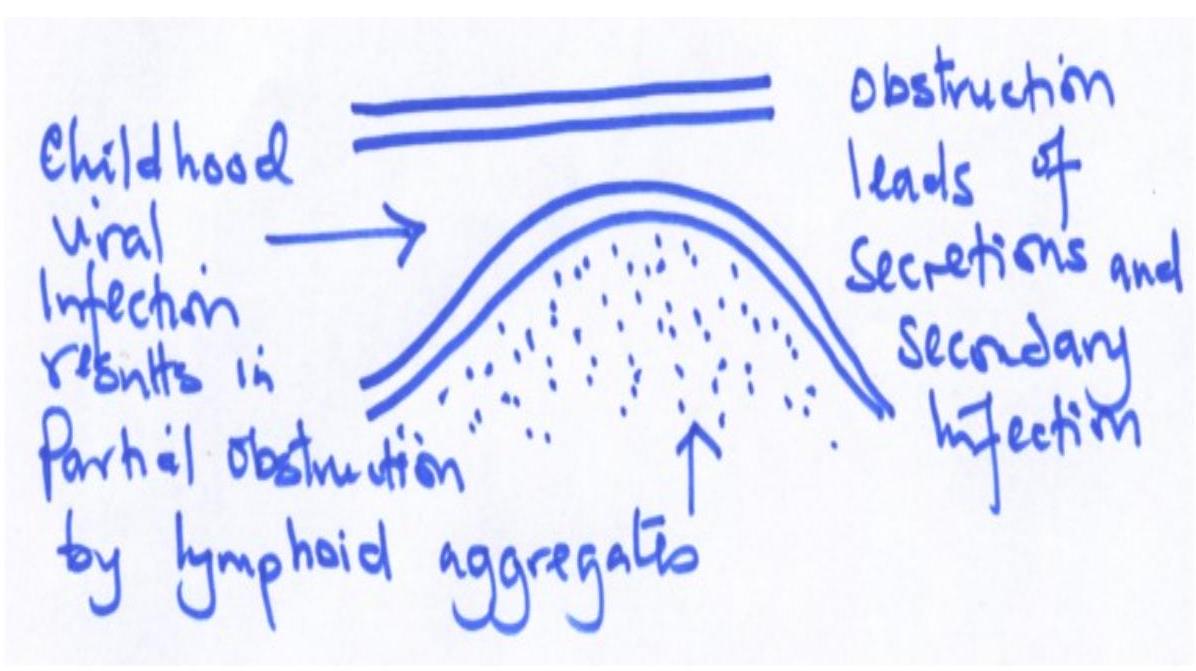 Childhood
Viral
Infection
results in
Partial obstruction
by lymphoid aggregates
Obstruction
leads of
secretions and
secondary
Infection